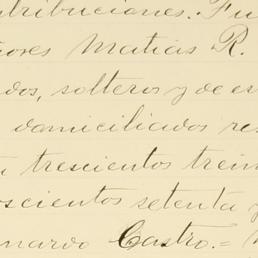 tribuciones. Fu
ores Matias R.
dos, solteros y de es
domiciliados res
trescientos trein
oscientos setenta y
nardo Castro. =